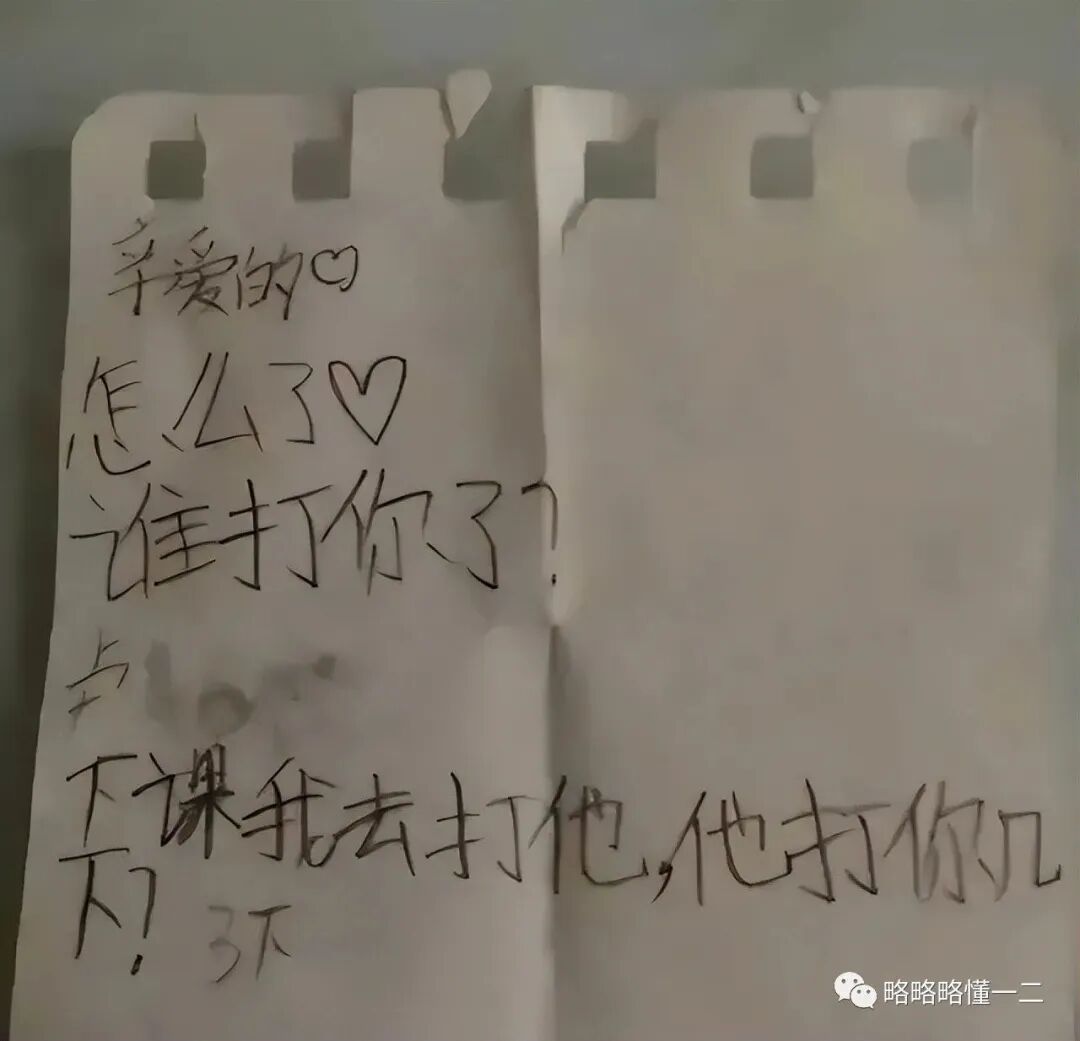 亲爱的♡
怎么了♡
谁打你了?
卢
下课我去打他,他打你几
下?
3下
略略略懂一二